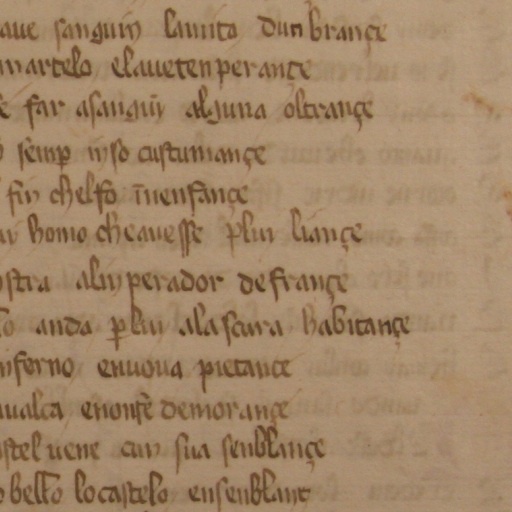 ave sanguin lamita dun brançe
martelo elaveten perançe
far asanguī alguna oltrançe
semp inso custumançe
fin chelfo īnenfançe
homo cheavesse plui liançe
ostra alinperador de françe
anda plui alascura habitançe
nferno enuova pietance
valca enonse demorançe
stel vene cun sua senblançe
bello lo castelo ensenblant